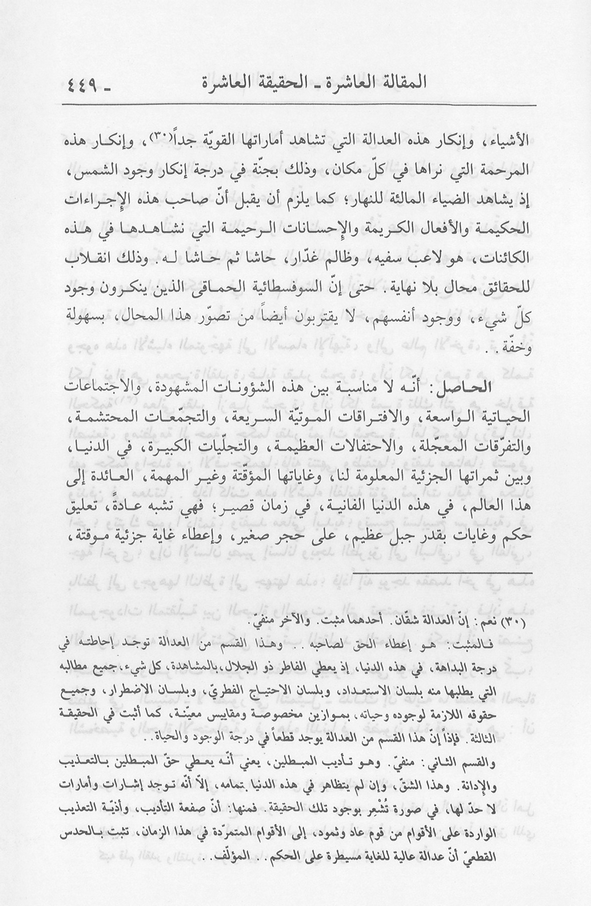 المقالة العاشرة ـ الحقيقة العاشرة ـ ٤٤٩
الأشياء، وإنكار هذه العدالة التي تشاهد أماراتها القويّة جداً(٣٠)، وإنكـار هذه
المرحمة التي نراها في كلّ مكان، وذلك بجنّة في درجة إنكار وجود الشمس،
إذ يشاهد الضياء المالئة للنهار؛ كما يلزم أن يقبل أنّ صاحب هذه الإجراءات
الحكيمـة والأفعال الكـريمة والإحسـانات الـرحيمـة التي نشـاهـدهـا في هـذه
الكائنات، هو لاعب سفيه، وظالم غدّار، حاشا ثم حاشـا لـه. وذلك انقـلاب
للحقائق محال بلا نهاية. حتى إنّ السوفسطائية الحماقى الذين ينكـرون وجود
كلّ شيء، ووجود أنفسهم، لا يقتربون أيضاً من تصوّر هذا المحال، بسهولة
وخفّة..
الحـاصل: أنّـه لا مناسبـة بين هذه الشؤونـات المشهودة، والاجتماعات
الحياتية الـواسعة، والافتـراقات المـوتيّة السـريعة، والتجمّعـات المحتشمـة،
والتفرّقات المعجّلة، والاحتفالات العظيمـة، والتجلّيات الكبيرة، في الدنيـا،
وبين ثمراتها الجزئية المعلومة لنا، وغاياتها المؤقّتة وغيـر المهمة، العـائدة إلى
هذا العالم، في هذه الدنيا الفانيـة، في زمان قصيـر؛ فهي تشبه عـادةً، تعليق
حكم وغايات بقدر جبل عظيم، على حجر صغير، وإعطاء غاية جزئية مـوقتة،
(٣٠) نعم: إنّ العدالة شقّان. أحدهما مثبت. والآخر منفيّ.
فـالمثبت: هـو إعطاء الحق لصاحبه.. وهـذا القسم من العدالة توجـد إحاطتـه في
درجة البداهة، في هذه الدنيا، إذ يعطي الفاطر ذو الجلال،بالمشاهدة، كل شيء،جميع مطالبه
التي يطلبها منه بلسان الاستعـداد، وبلسان الاحتيـاج الفطريّ، وبلسـان الاضطرار، وجميـع
حقوقه اللازمة لوجوده وحياته، بمـوازين مخصوصـة ومقاييس معيّنـة، كما أثبت في الحقيقـة
الثالثة. فإذاً إنّ هذا القسم من العدالة يوجد قطعاً في درجة الوجود والحياة..
والقسم الثـاني: منفيّ. وهـو تأديب المبـطلين، يعني أنّـه يعـطي حقّ المبـطلين بـالتعذيب
والإدانة. وهذا الشقّ، وإن لم يتظاهر في هذه الدنيا بتمامه، إلّا أنّه تـوجد إشـارات وأمارات
لا حدّ لها، في صورة تُشْعِر بوجود تلك الحقيقة. فمنها: أنّ صفعة التأديب، وأذيّـة التعذيب
الواردة على الأقوام من قوم عاد وثمود، إلى الأقوام المتمرّدة في هذا الزمان، تثبت بـالحدس
القطعيّ أنّ عدالة عالية للغاية مسيطرة على الحكم.. المؤلّف..